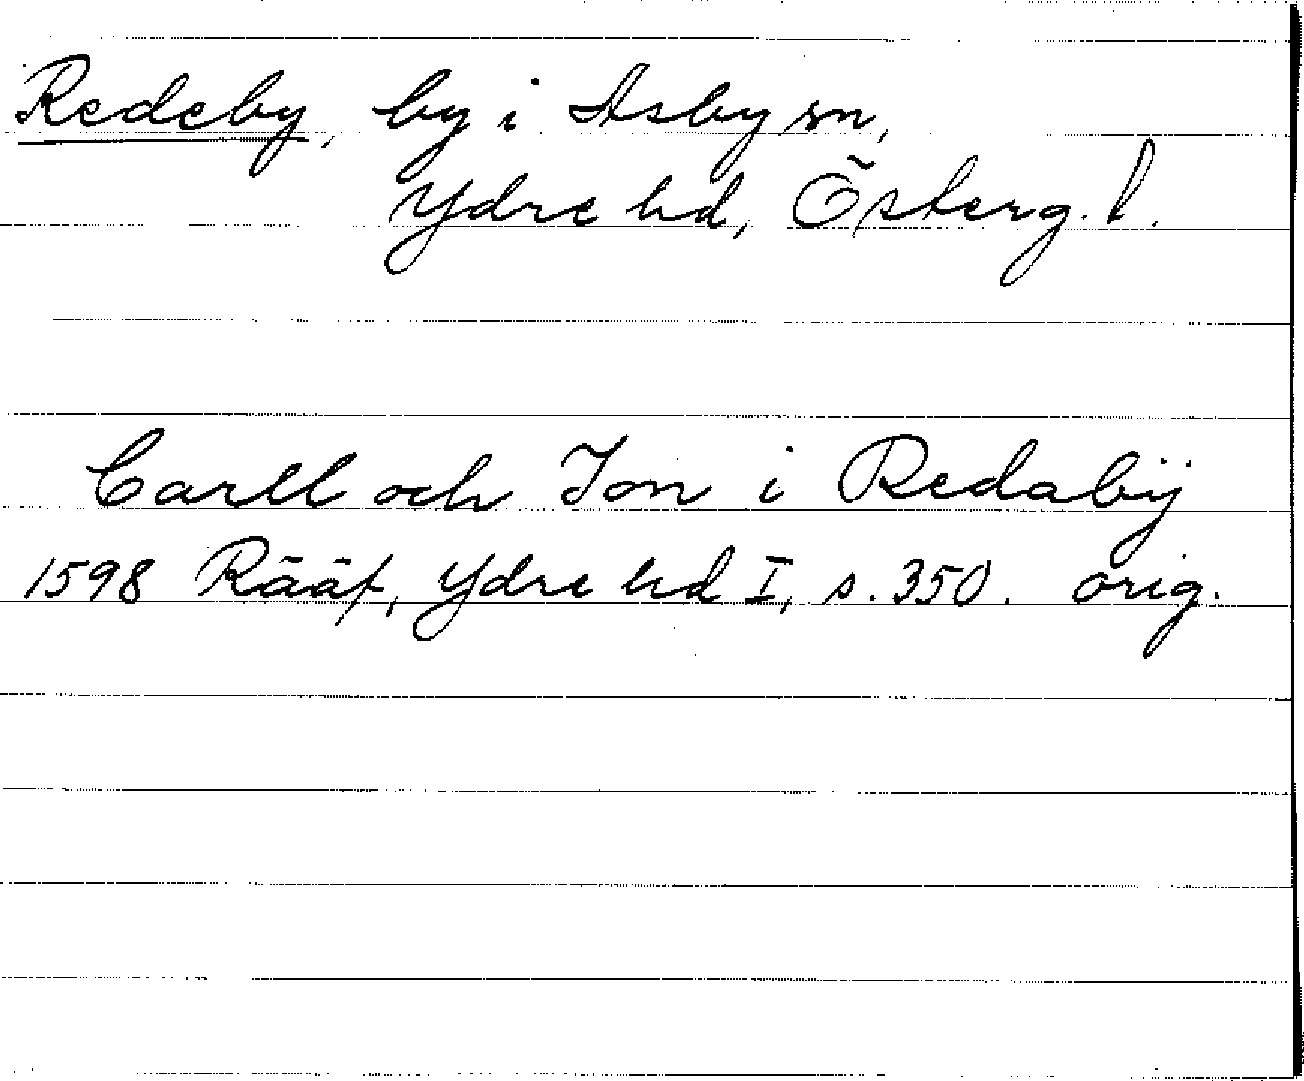 Redeby, by i Asby sn,
Ydre hd, Österg. l.
Carll och Jon i Redabÿ
1598 Rääf, Ydre hd I, s. 350. orig.